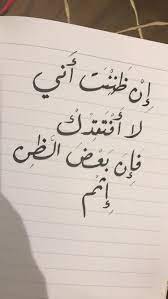 إِنْ ظَنَنْتَ أَني
لا أَفتقِدُكَ
فَإِن بَعْضَ الظَنِ
إِثْم